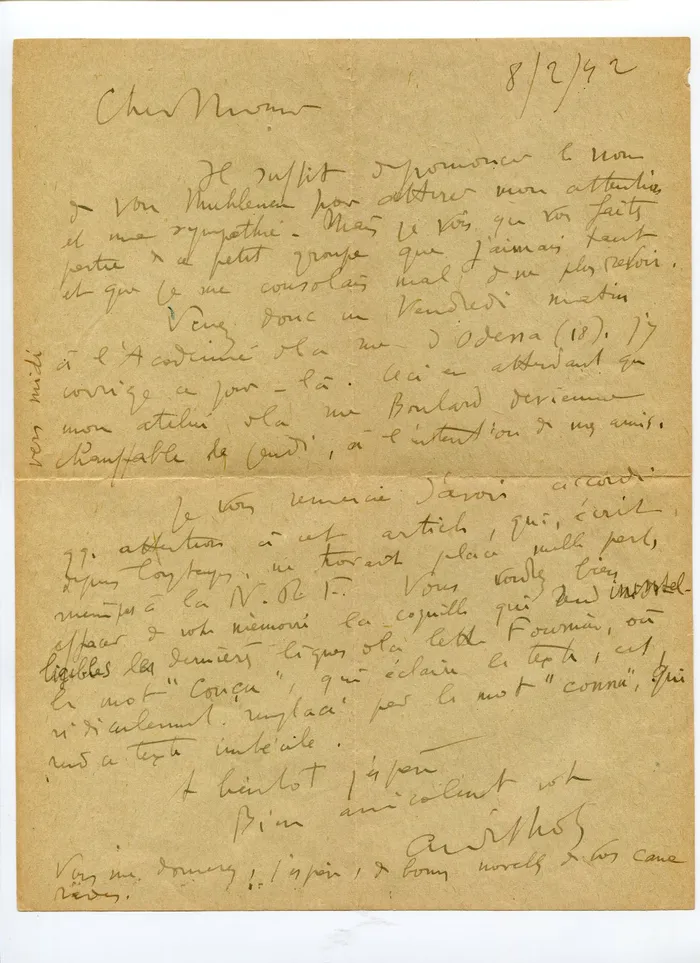 8/2/42
Cher Monsieur
Il suffit de prononcer le nom
de von Muhlenen pour attirer mon attention
et ma sympathie - Mais je vois que vos faits
partie de ce petit groupe que j'aimais tant
et que je me consolais mal de ne plus revoir.
Venez donc un Vendredi matin
à l'Académie de la rue d'Odessa (18). J'y
corrige ce jour-là. Ceci en attendant que
mon atelier de la rue Boulard devienne
chauffable le jeudi, à l'intention de mes amis.
vers midi
Je vous remercie d'avoir accordé
qq. attention à cet article, qui, écrit
depuis longtemps, ne trouvait place nulle part,
même pas à la N.R.F. Vous voudrez bien
effacer de votre mémoire la coquille qui rend inintel-
ligibles les dernières lignes de la lettre Fournier, où
le mot "conçu", qui éclaire le texte, est
ridiculement remplacé par le mot "connu", qui
rend ce texte imbécile.
A bientôt j'espère
Bien amicalement votre
André Lhote
Vous me donnerez, j'espère, de bonnes nouvelles de vos cama
rades.